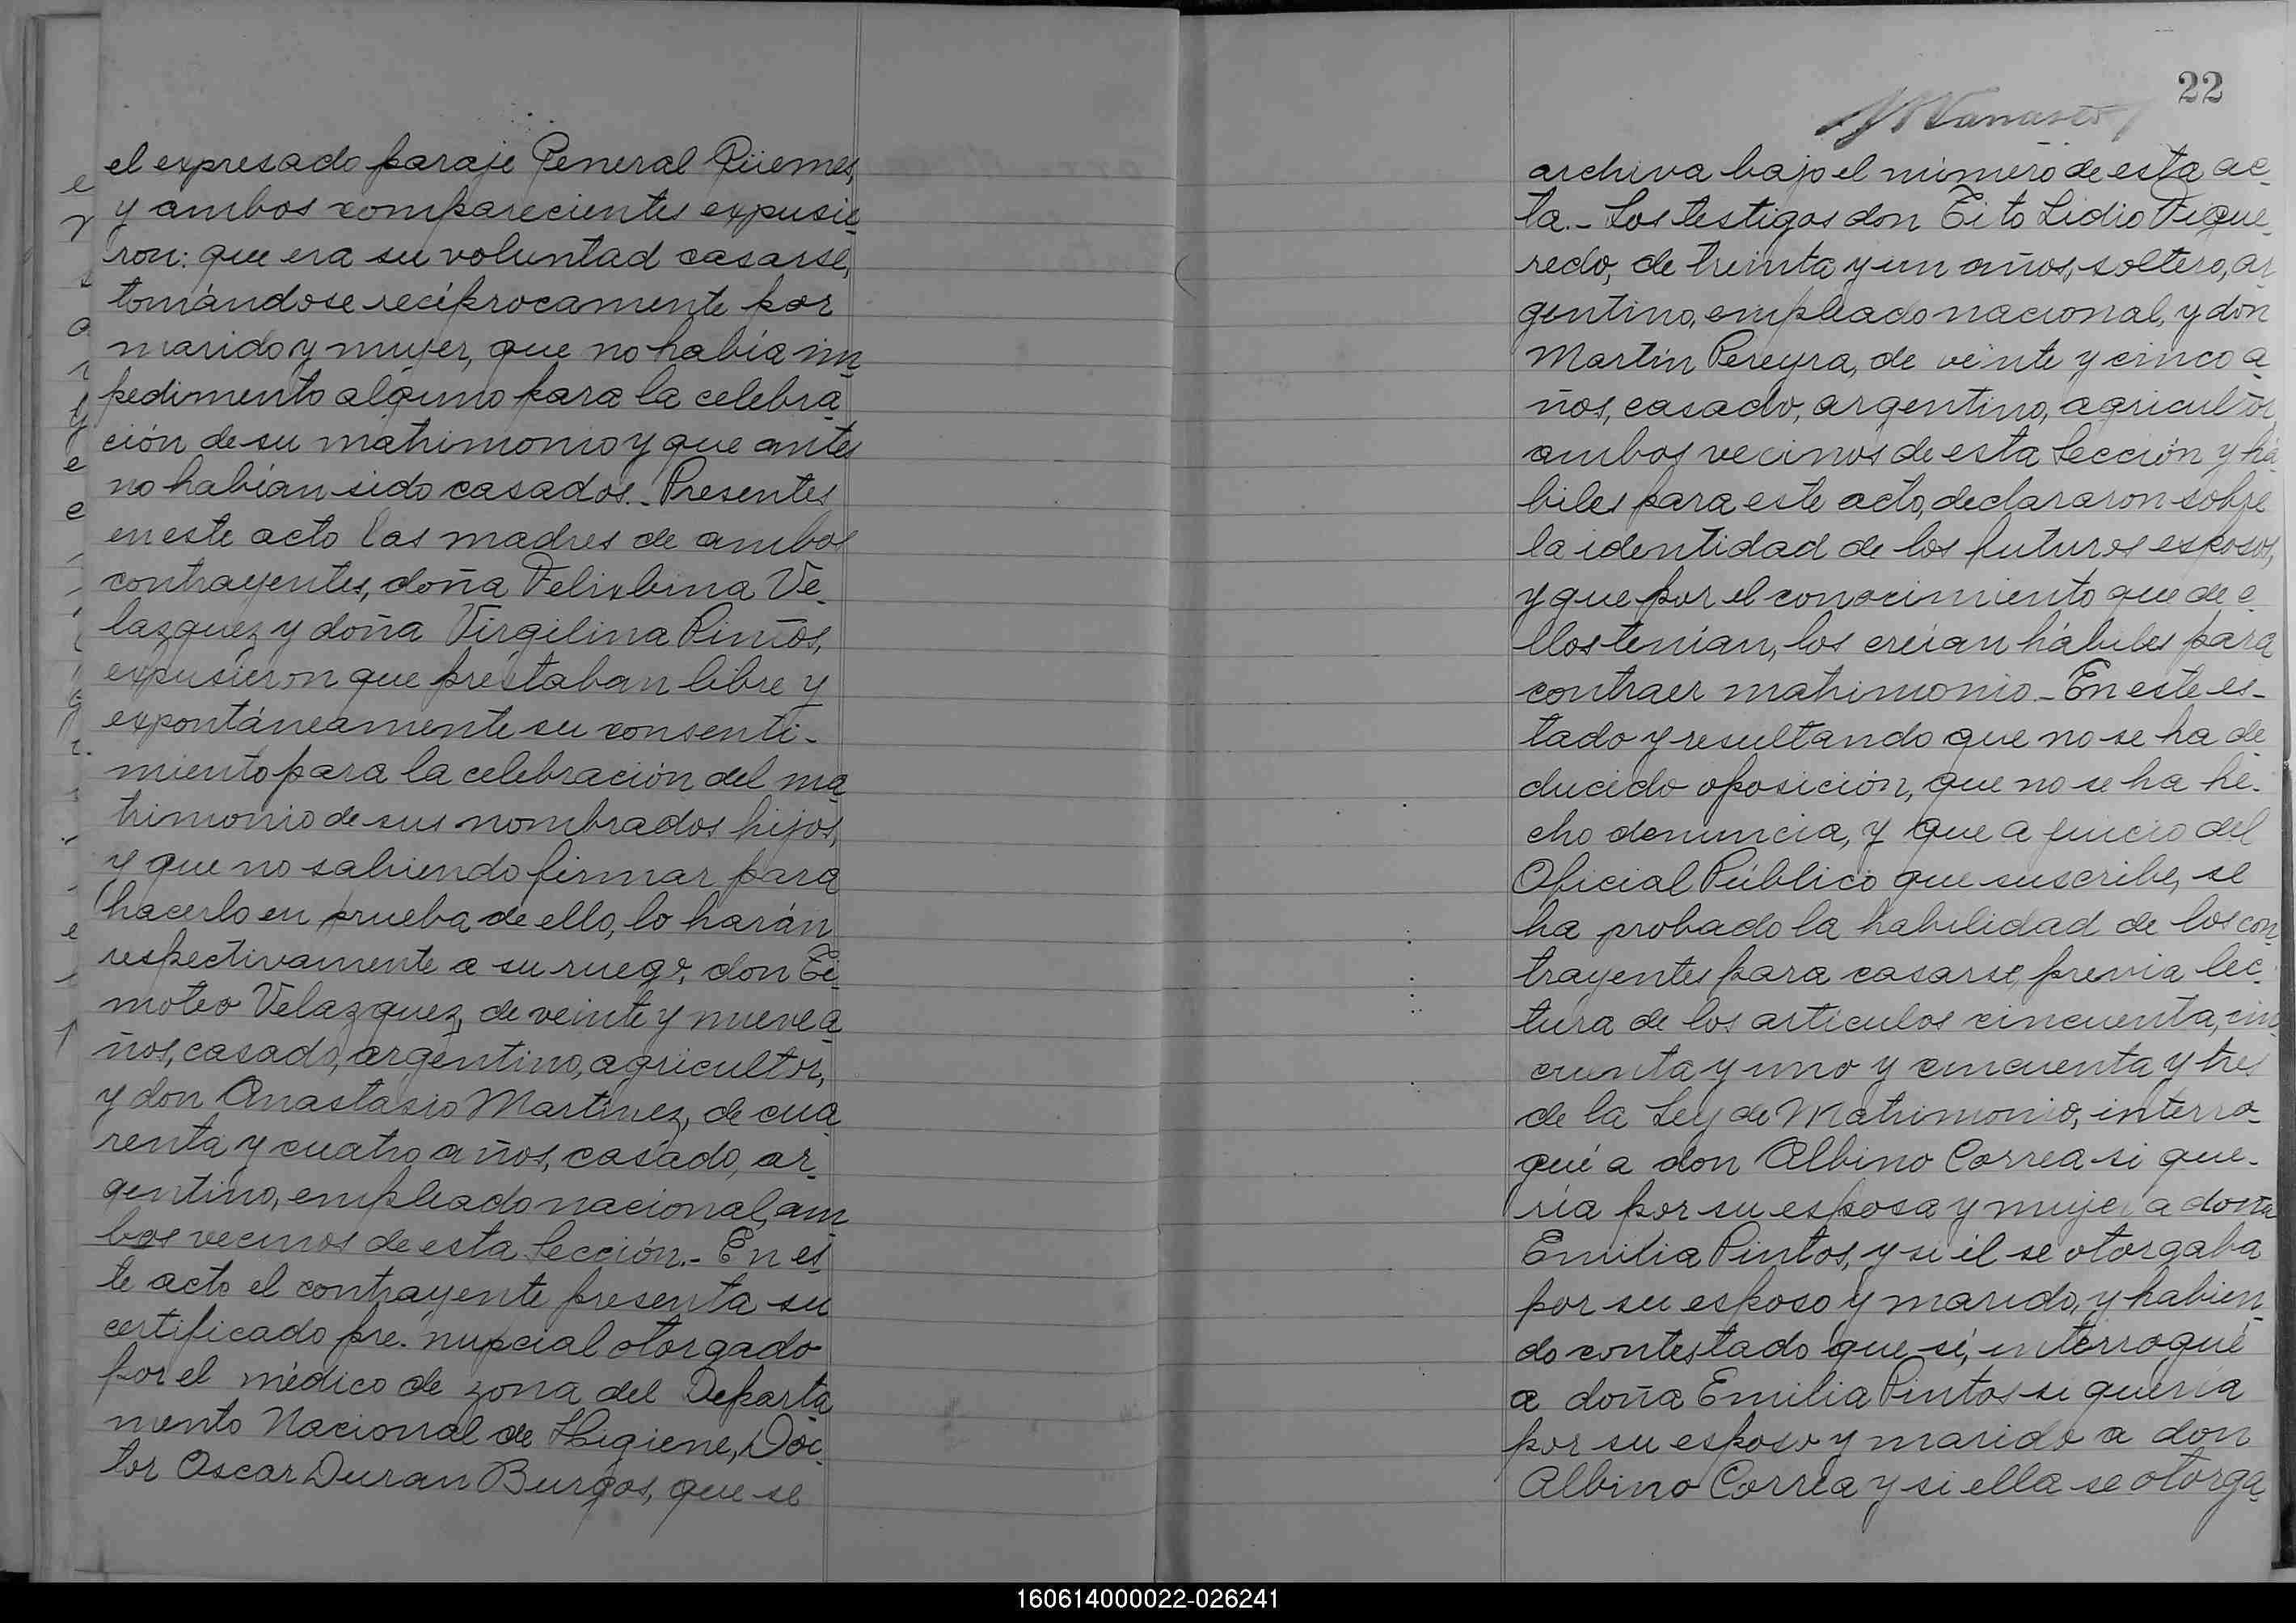 el expresado paraje General Güemes,
y ambos comparecientes expusie
ron: que era su voluntad casarse,
tomándose recíprocamente por
marido y mujer, que no había im
pedimento alguno para la celebra
ción de su matrimonio y que antes
no habían sido casados.- Presentes
en este acto las madres de ambos
contrayentes, doña Felisbina Ve
lazquez y doña Virgilina Pintos,
expusieron que prestaban libre y
expontáneamente su consenti-
miento para la celebración del ma
trimonio de sus nombrados hijos,
y que no sabiendo firmar para
hacerlo en prueba de ello, lo harán
respectivamente a su ruego, don Ti
moteo Velazquez, de veinte y nueve a
ños, casado, argentino, agricultor,
y don Anastasio Martinez, de cua
renta y cuatro años, casado, ar
gentino, empleado nacional, am
bos vecinos de esta Sección.- En es
te acto el contrayente presenta su
certificado pre-nupcial otorgado
por el médico de zona del Departa
mento Nacional de Higiene, Doc
tor Oscar Duran Burgos, que se
22
archiva bajo el número de esta ac
ta.- Los testigos don Tito Lidio Figue
redo, de treinta y un años, soltero, ar
gentino, empleado nacional, y don
Martín Pereyra, de veinte y cinco a
ños, casado, argentino, agricultor
ambos vecinos de esta Sección y há
biles para este acto, declararon sobre
la identidad de los futuros esposos,
y que por el conocimiento que de e
llos tenían, los creían hábiles para
contraer matrimonio.- En este es-
tado y resultando que no se ha de
ducido oposición, que no se ha he-
cho denuncia, y que a juicio del
Oficial Público que suscribe, se
ha probado la habilidad de los con
trayentes para casarse, previa lec
tura de los artículos cincuenta, cin
cuenta y uno y cincuenta y tres
de la Ley de Matrimonio, interro-
gué a don Albino Correa si que-
ría por su esposa y mujer a doña
Emilia Pintos, y si él se otorgaba
por su esposo y marido, y habien
do contestado que sí, interrogué
a doña Emilia Pintos si quería
por su esposo y marido a don
Albino Correa y si ella se otorga
160614000022-026241